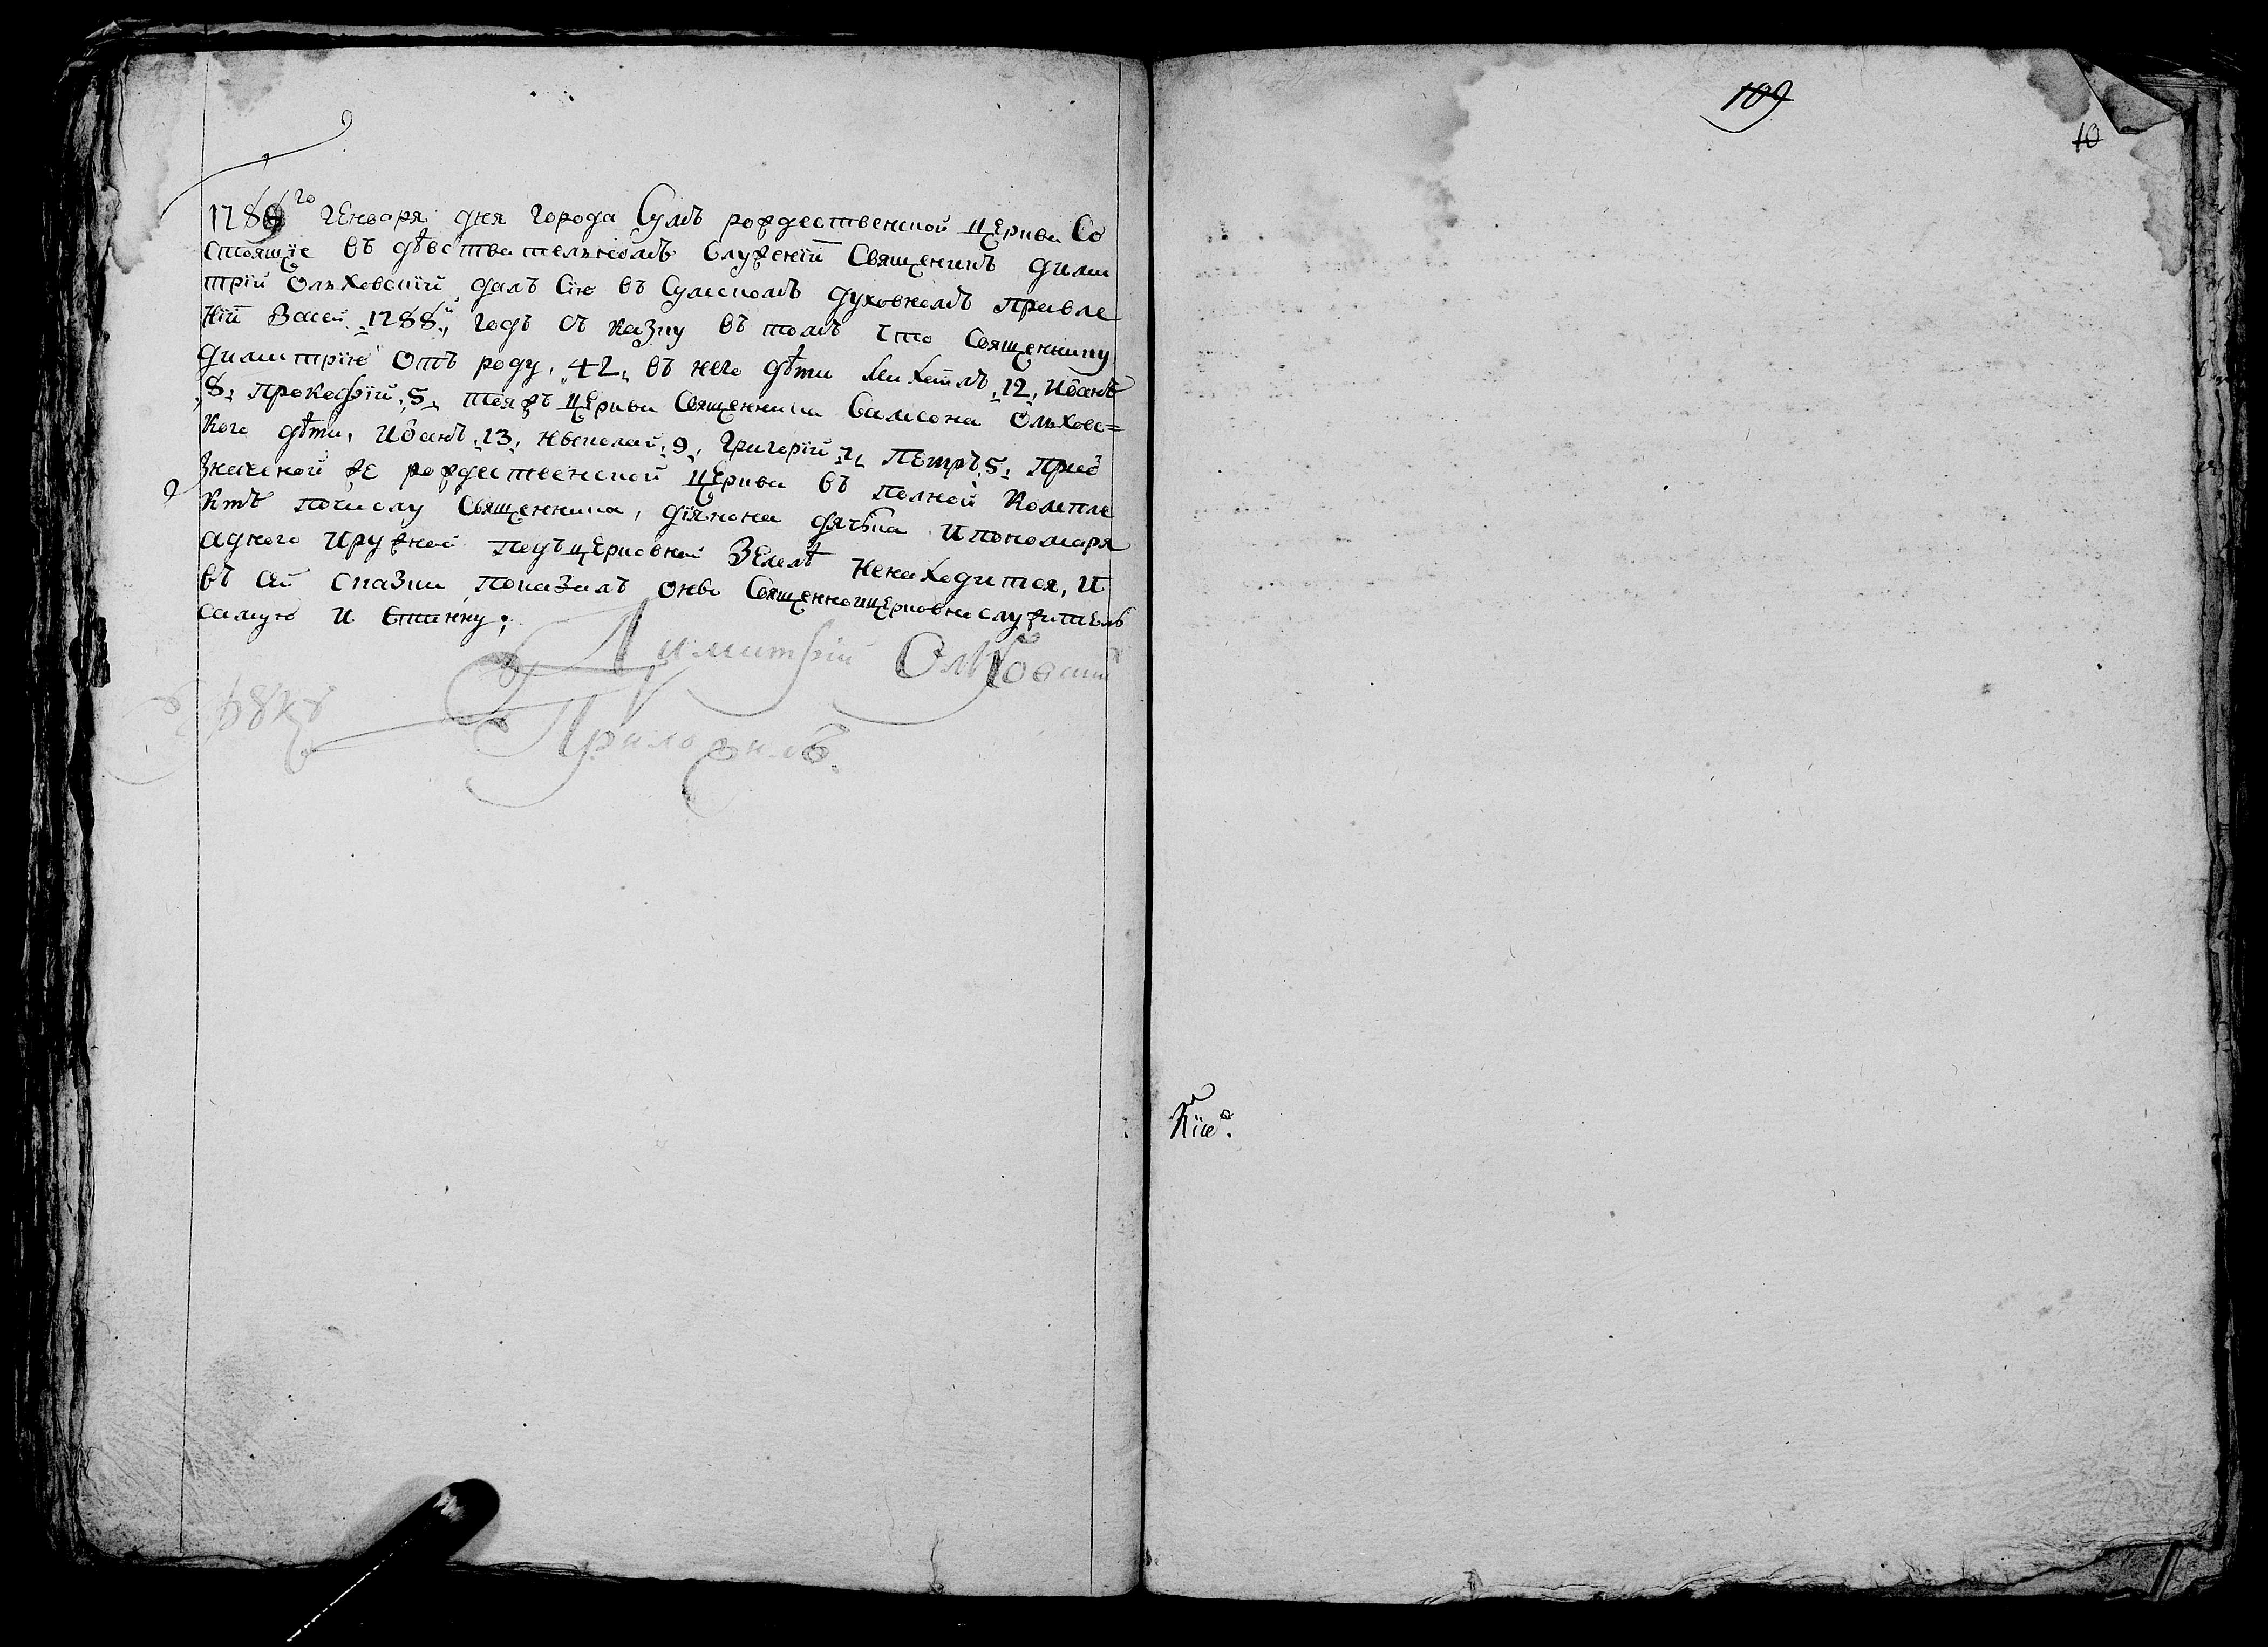 109
10
1789 го Генваря дня города Сумъ рождественской церкви Со
стоящїе въ дѣвствителномъ служенїи Священикъ дими
трїй Олховскїй далъ сїю въ Сумскомъ духовномъ правле
нїи Всей 1788й годъ съ казку въ томъ что Священнику
димитрїю отъ роду, 42, въ него дѣти Михаилъ, 12, Иванъ
,8, Прокофїй, 5, тояжъ церкви Священника Самсона Ольховс=
кого дѣти, Иванъ, 13, Николай, 9, Григорїй, 7, Петръ, 5, При
значеной же рождественской церкви въ полной Компле
ктъ почислу Священника, дїякона дячка И пономаря
адного И ружной подъ церковной Землѣ Ненаходится, И
въ сей сказки показалъ Священноицерковнослужитель
самую И стинну;
Димитрїй Олховскїй
Приложилъ.